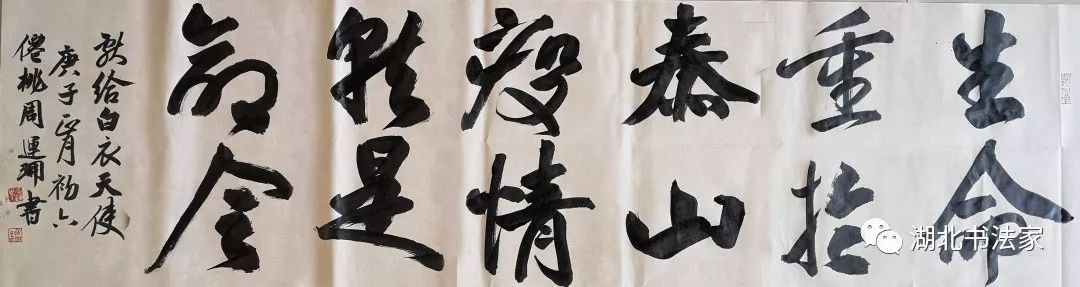 生命
重於
泰山
疫情
就是
命令
献给白衣天使
庚子正月初六
僊桃周運書
湖北书法家